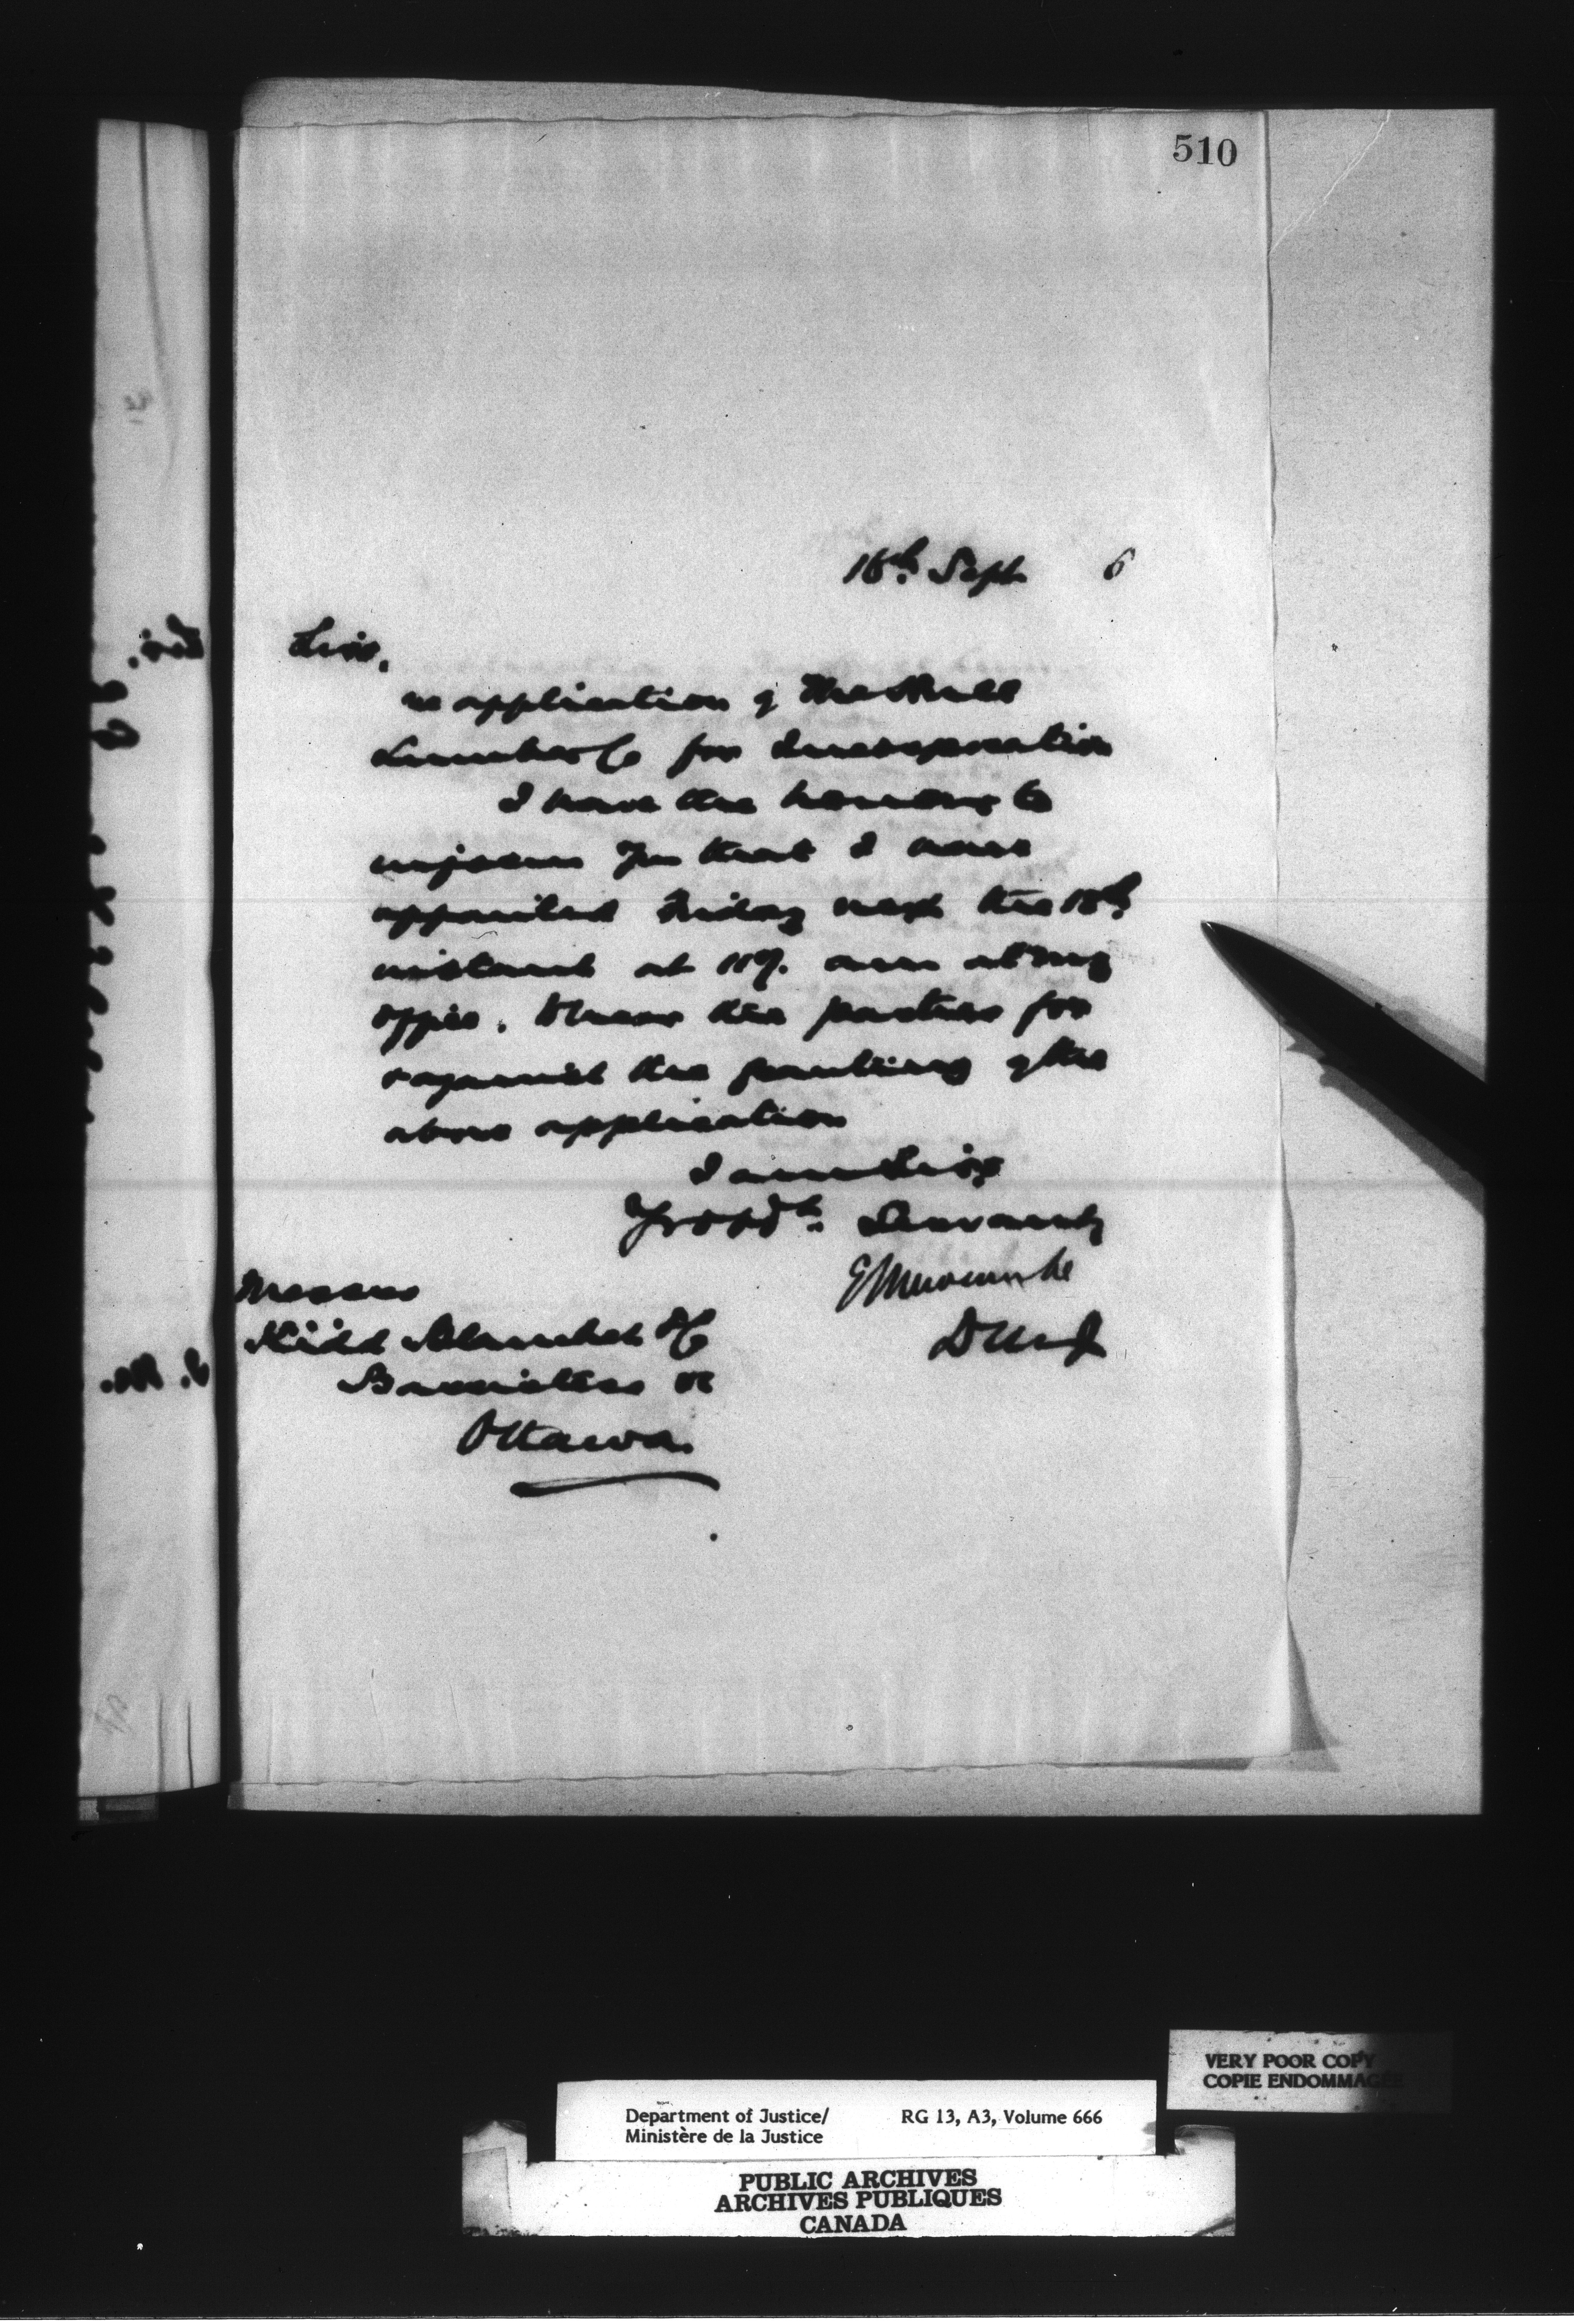 510
16th. Sept 6
Sirs,
re application of The Hull
Lumber Co for Incorporation
I have the honour to
inform you that I have
appointed Friday next the 18th
instant at 11 am at my
office. to hear the parties for
or against the granting of the
above application
I am Sirs
Yr obdt. Servant
E L Newcombe
D M of J
Messrs
Kidd &
Barristers &c
Ottawa.
VERY POOR COPY
COPIE ENDOMMAGÉE
Department of Justice/ RG 13, A3, Volume 666
Ministère de la Justice
PUBLIC ARCHIVES
ARCHIVES PUBLIQUES
CANADA